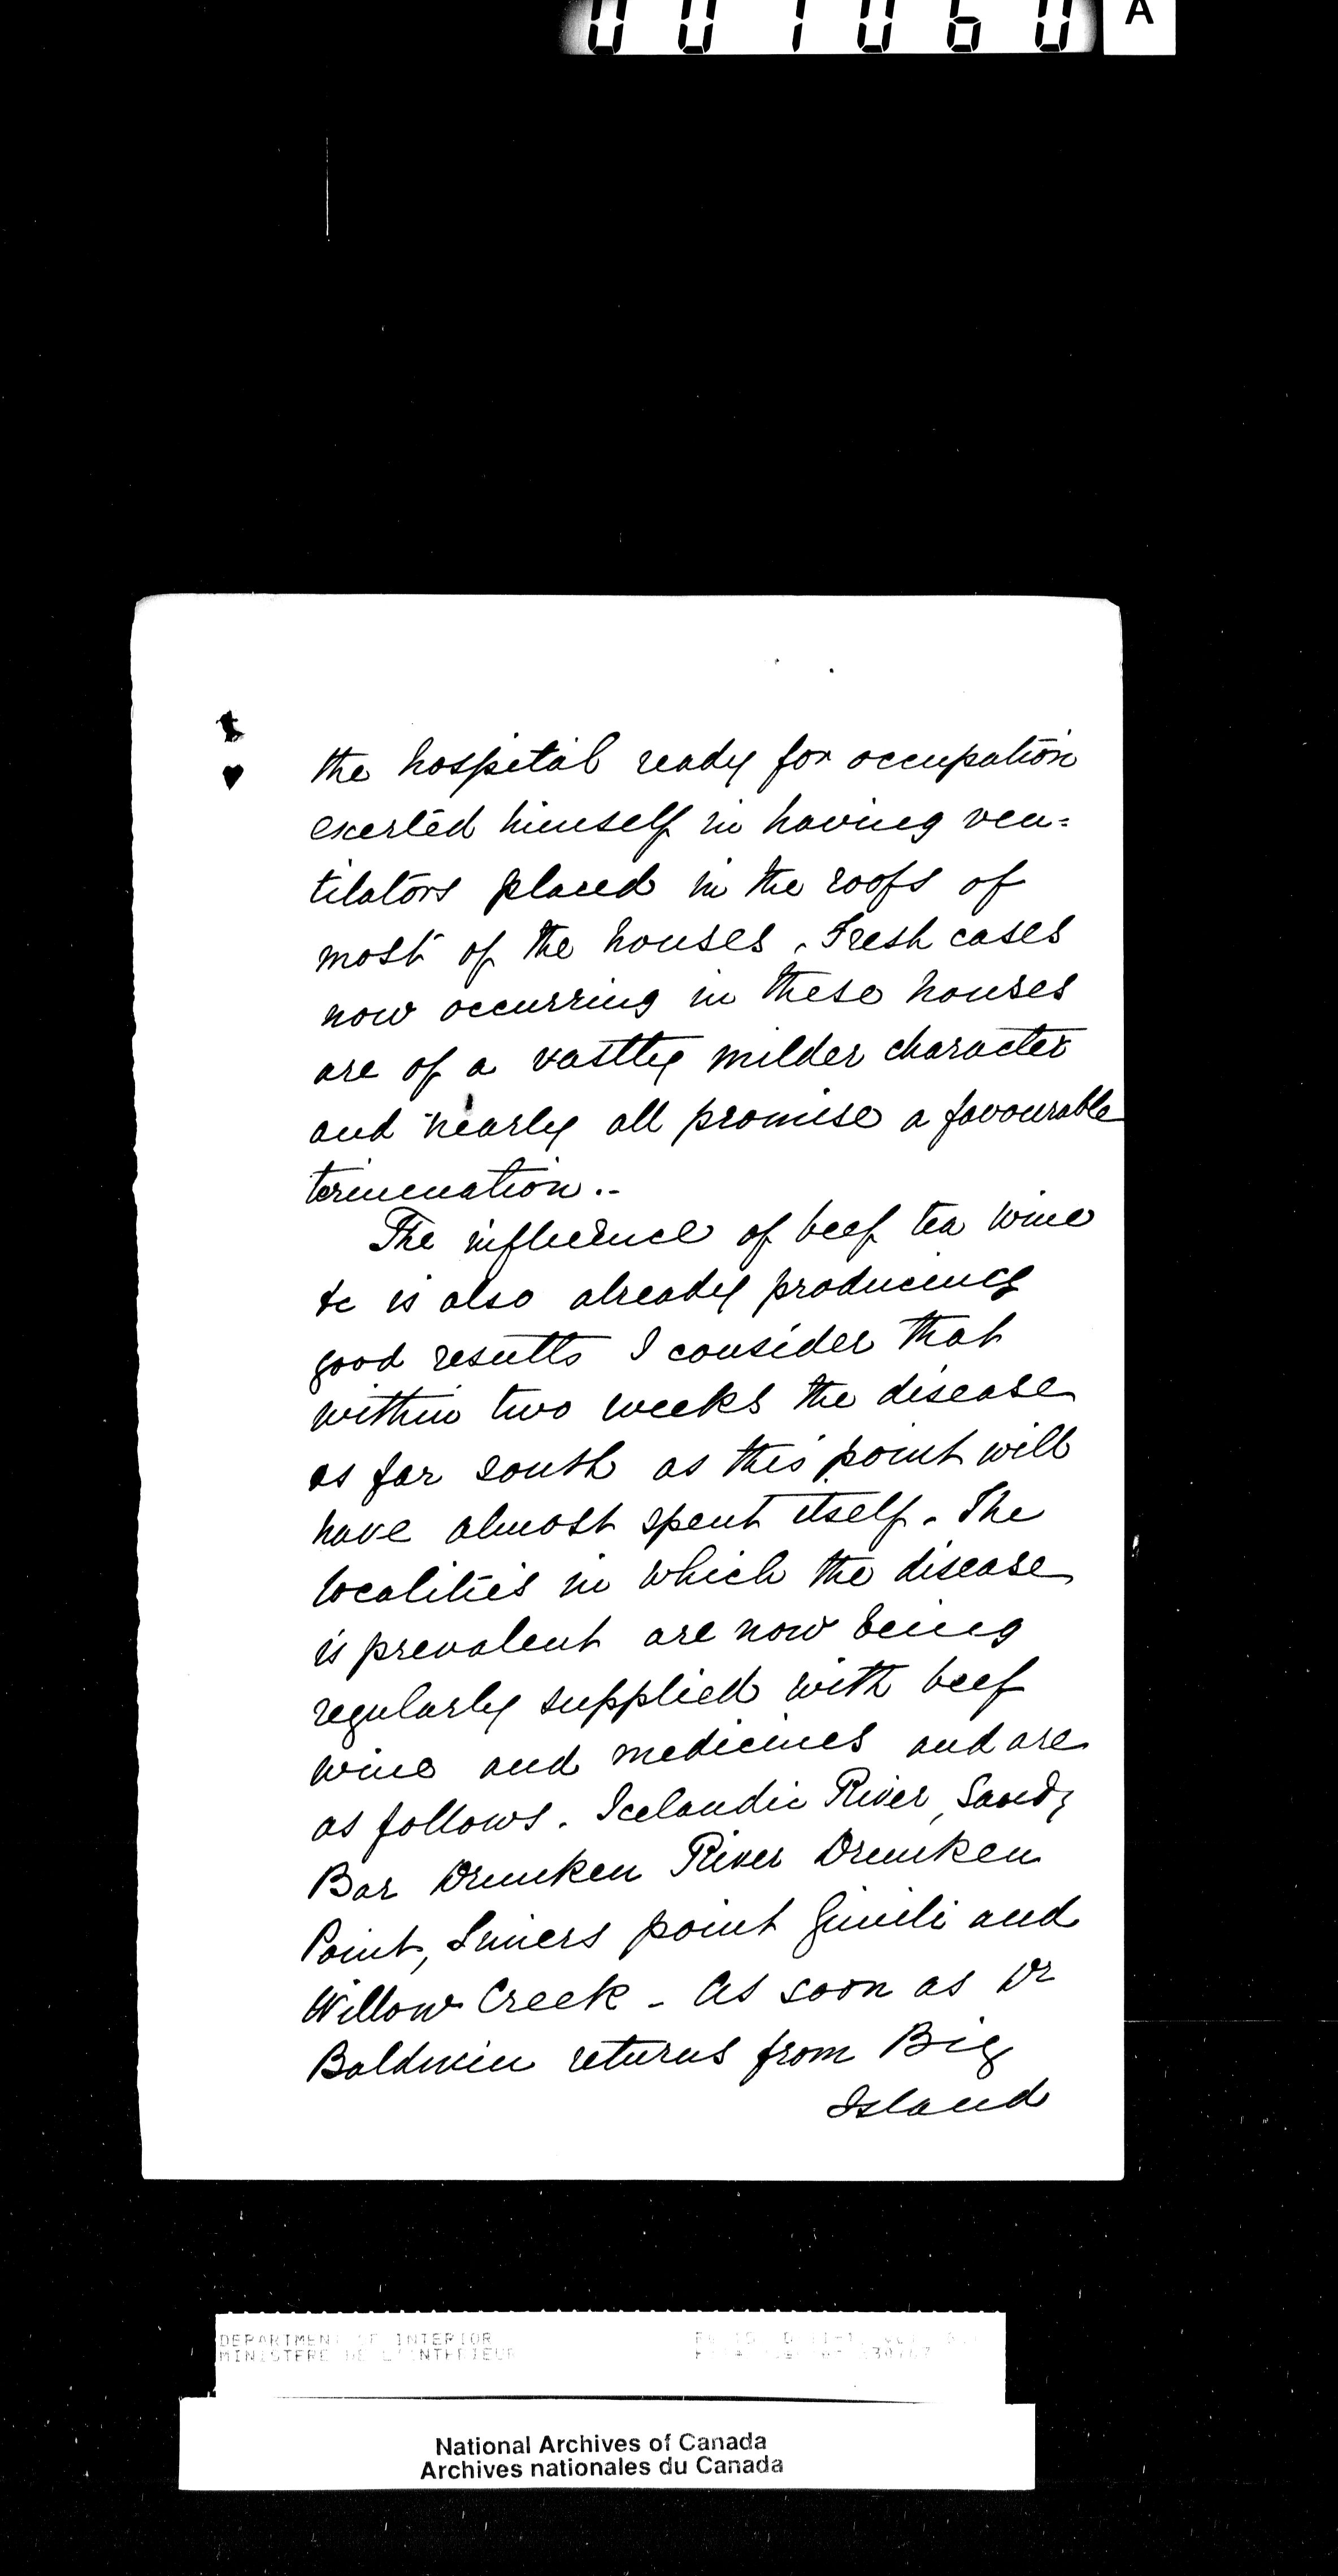 001060 A
the hospital ready for occupation
exerted himself in having ven=
tilators placed in the roofs of
most of the houses. Fresh cases
now occurring in these houses
are of a vastly milder character
and nearly all promise a favourable
termination..
The influence of beef tea wine
&c is also already producing
good results I consider that
within two weeks the disease
as far south as this point will
have almost spent itself. The
localities in which the disease
is prevalent are now being
regularly supplied with beef
wine and medicines and are
as follows. Icelandic River, Sandy
Bar Drunken River Drunken
Point, point Gimli and
Willow Creek - As soon as Dr
Baldwin returns from Big
Island
DEPARTMENT OF INTERIOR
MINISTERE DE L'INTERIEUR
National Archives of Canada
Archives nationales du Canada